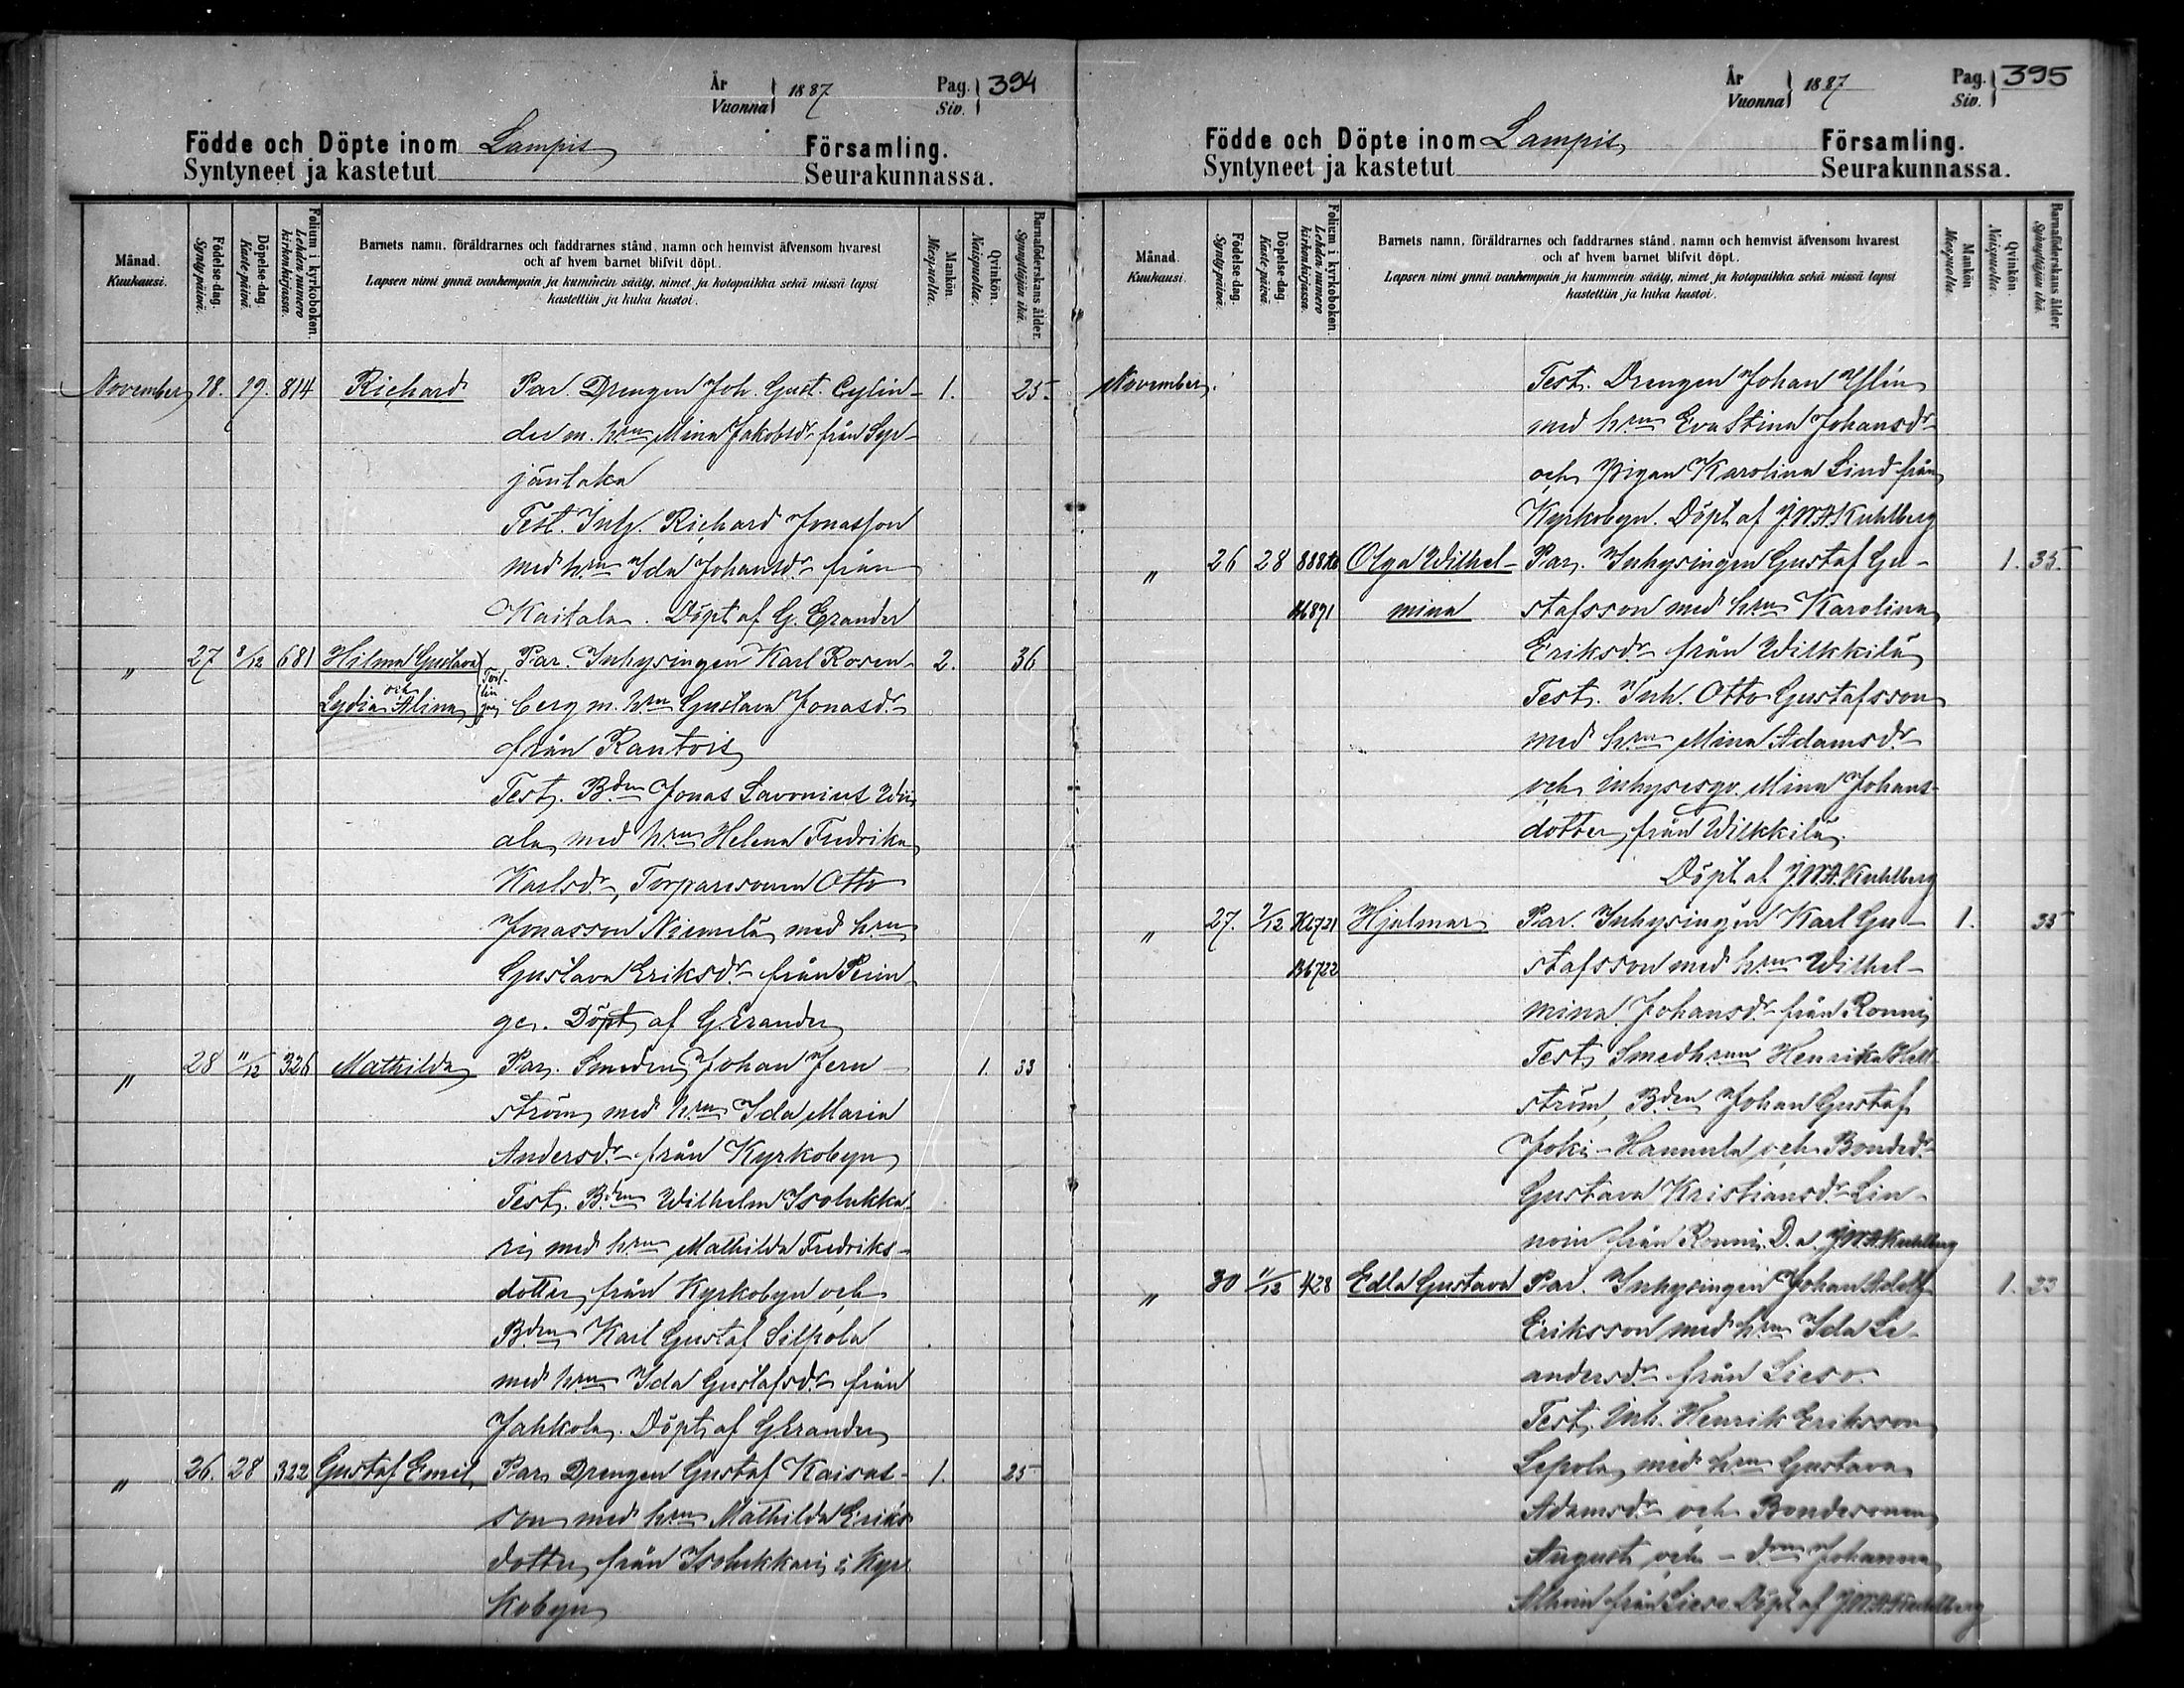 År
Vuonna } 1887 Pag. Siv. } 394
Födde och Döpte inom Lampis Församling.
Syntyneet ja kastetut Seurakunnassa.
Månad. Kuukausi.
Födelse-dag. Synty-päivä.
Döpelse-dag. Kaste-päivä.
Folium i kyrkoboken. Lehden numero kirkonkirjassa.
Barnets namn, föräldrarnes och faddrarnes stånd, namn och hemvist äfvensom hvarest
och af hvem barnet blifvit döpt.
Lapsen nimi ynnä vanhempain ja kummein sääty, nimet ja kotopaikka sekä missä lapsi
kastettiin ja kuka kastoi.
Mankön. Miespuolta.
Qvinkön. Naispuolta.
Barnaföderskans ålder. Synnyttäjän ikä.
November 18. 19. 814 Richard Par. Drengen Joh. Gust. Cylin- 1. 25.
der m. hrn Mina Jakobsdr från Sep-
jänlaka
Test. Inh. Richard Jonasson
med hrn Ida Johansdr från
Kaitala. Döpt af G. Erander
" 27 8/12 681 Hilma Gustava Par. Inhysingen Karl Rosen- 2. 36
och Lydia Alina Tvil-lin-gar berg m. hrn Gustava Jonasdr
från Rantois
Test. Bden Jonas Savonius Wii
ala med hrn Helena Fredrika
Karlsdr, Torparesonen Otto
Jonasson Niemelä med hrn
Gustava Eriksdr från Perin-
ge. Döpt af G Erander
" 28 11/12 326 Mathilda Par. Smeden Johan Jern- 1. 33
ström med hrn Ida Maria
Andersdr från Kyrkobyn
Test. Bden Wilhelm Isolukka-
ri med hrn Mathilda Fredriks-
dotter från Kyrkobyn och
Bden Karl Gustaf Silpola
med hrn Ida Gustafsdr från
Jahkola. Döpt af G Erander
" 26. 28 322 Gustaf Emil Par. Drengen Gustaf Kaisas- 1. 25
son med hrn Mathilda Eriks
dotter från Isolukkari i Kyr-
kobyn
År
Vuonna } 1887 Pag. Siv. } 395
Födde och Döpte inom Lampis Församling.
Syntyneet ja kastetut Seurakunnassa.
Månad. Kuukausi.
Födelse-dag. Synty-päivä.
Döpelse-dag. Kaste-päivä.
Folium i kyrkoboken. Lehden numero kirkonkirjassa.
Barnets namn, föräldrarnes och faddrarnes stånd, namn och hemvist äfvensom hvarest
och af hvem barnet blifvit döpt.
Lapsen nimi ynnä vanhempain ja kummein sääty, nimet ja kotopaikka sekä missä lapsi
kastettiin ja kuka kastoi.
Mankön Miespuolta.
Qvinkön. Naispuolta.
Barnaföderskans ålder. Synnyttäjän ikä.
November. Test. Drengen Johan Ylin
med hrn Eva Stina Johansdr
och Pigan Karolina Lind från
Kyrkobyn. Döpt af J W A Kuhlberg
" 26 28 Olga Wilhel- Par. Inhysingen Gustaf Gu- 1. 35.
mina stafsson med hrn Karolina
Eriksdr från Wilkkilä
Test. Inh. Otto Gustafsson
med hrn Mina Adamsdr
och inhysesqv. Mina Johans-
dotter från Wilkkilä.
Döpt af J W A. Kuhlberg
" 27. 7/12 Hjalmar Par. Inhysingen Karl Gu- 1. 35
stafsson med hrn Wilhel-
mina Johansdr från Ronni
Test. Smedhrun Henrika Hell
ström, Bden Johan Gustaf
Joki-Hannula och Bondedr
Gustava Kristiansdr Lin-
noin från Ronni. D. a. J W A Kuhlberg
" 30 11/12 428 Edla Gustava Par. Inhysingen Johan Adolf 1. 23
Eriksson med hrn Ida Le-
andersdr från Lieso.
Test. Inh. Henrik Eriksson
Lepola med hrn Gustava
Adamsdr och Bondesonen
August och - drn Johanna
från Lieso Döpt af J W A Kuhlberg